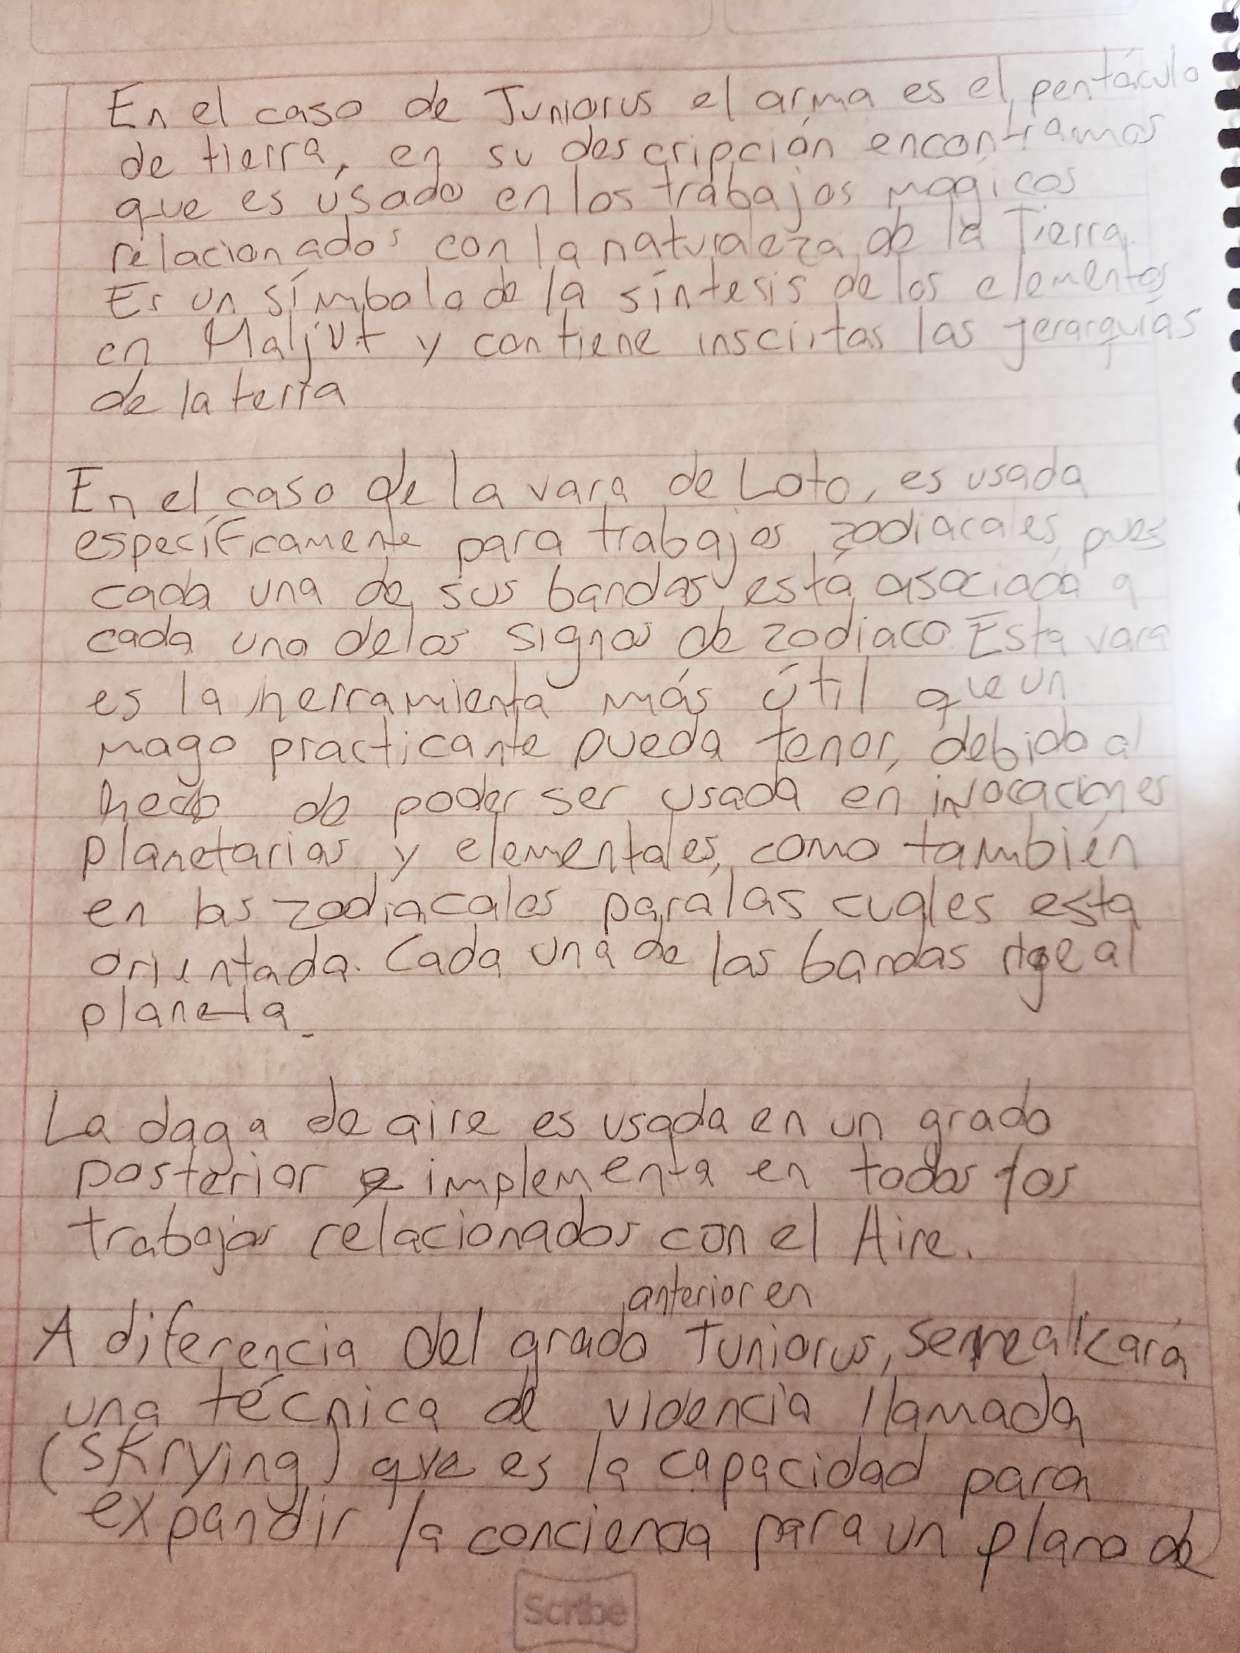 En el caso de Juniorus el arma es el pentáculo
de tierra, en su descripción encontramos
que es usado en los trabajos magicos
relacionados con la naturaleza de la Tierra.
Es un símbolo de la síntesis de los elementos
en Maljut y contiene insciitas las jerarquías
de la terra
En el caso de la vara de Loto, es usada
específicamente para trabajos zodiacales, pues
cada una de sus bandas está asociada a
cada uno de los signos de zodiaco Esta vara
es la herramienta más útil que un
mago practicante pueda tener, debido al
hecho de poder ser usada en invocaciones
planetarias y elementales, como también
en las zodiacales para las cuales esta
orientada. Cada una de las bandas rige al
planeta.
La daga de aire es usada en un grado
posterior e implementa en todos los
trabajos relacionados con el Aire.
anterior en
A diferencia del grado Juniorus, se realicará
una técnica de videncia llamada
(Skrying) que es la capacidad para
expandir la conciencia para un plano de
Scribe